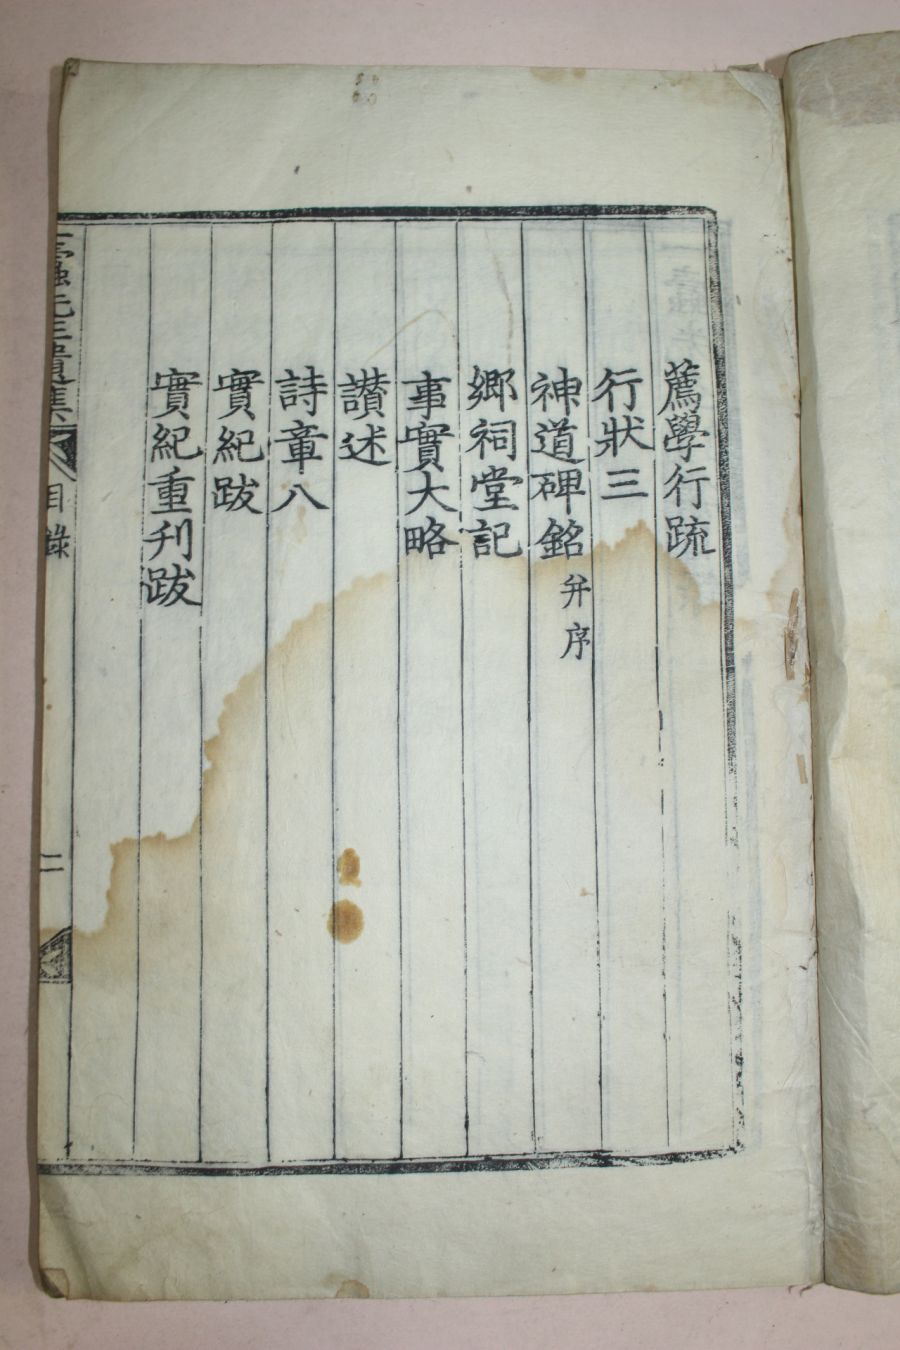 薦學行疏
行狀三
神道碑銘 并序
鄉祠堂記
事實大略
讃述
詩章八
實紀跋
實紀重刋跋
一蠹先生遺集 目錄 二